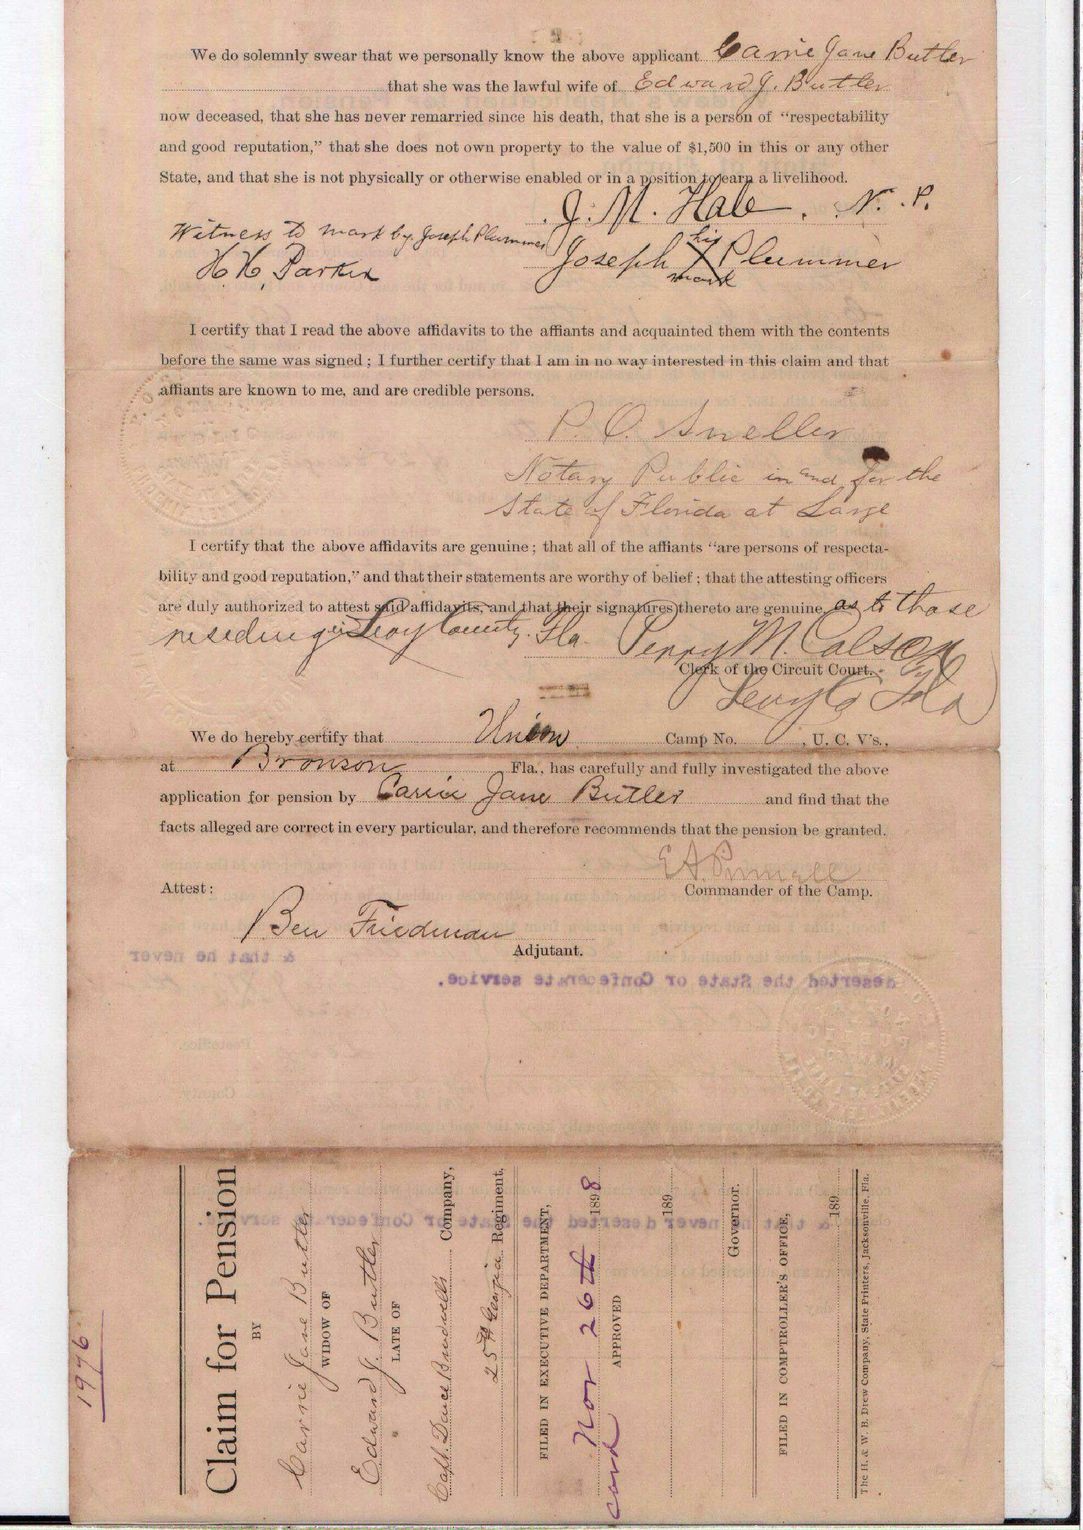 We do solemnly swear that we personally know the above applicant Carrie Jane Butler
that she was the lawful wife of Edward J. Butler
now deceased, that she has never remarried since his death, that she is a person of "respectability
and good reputation," that she does not own property to the value of $1,500 in this or any other
State, and that she is not physically or otherwise enabled or in a position to earn a livelihood.
J. M. Hale, N. P.
Witness to mark by Joseph Plummer
his
Joseph X Plummer
mark
H. H. Parker
I certify that I read the above affidavits to the affiants and acquainted them with the contents
before the same was signed; I further certify that I am in no way interested in this claim and that
affiants are known to me, and are credible persons.
P. O. Sneller
Notary Public in and for the
State of Florida at Large
I certify that the above affidavits are genuine; that all of the affiants "are persons of respecta-
bility and good reputation," and that their statements are worthy of belief; that the attesting officers
are duly authorized to attest said affidavits, and that their signatures thereto are genuine as to those
residing in Levy County Fla. Perry M. Colson
Clerk of the Circuit Court.
Levy Co Fla
We do hereby certify that Union Camp No. , U. C. V's.,
at Bronson Fla., has carefully and fully investigated the above
application for pension by Carrie Jane Butler and find that the
facts alleged are correct in every particular, and therefore recommends that the pension be granted.
Commander of the Camp.
Attest:
Ben Friedman
Adjutant.
& that he never
deserted the State or Confederate service.
1976
Claim for Pension
BY
Carrie Jane Butler
WIDOW OF
Edward J. Butler
LATE OF
Capt. Company,
25th Georgia Regiment,
FILED IN EXECUTIVE DEPARTMENT,
Nov 26th 1898
APPROVED
card
189
Governor.
FILED IN COMPTROLLER'S OFFICE,
189
The H. & W. B. Drew Company, State Printers, Jacksonville, Fla.
& that he never deserted the State or Confederate service.